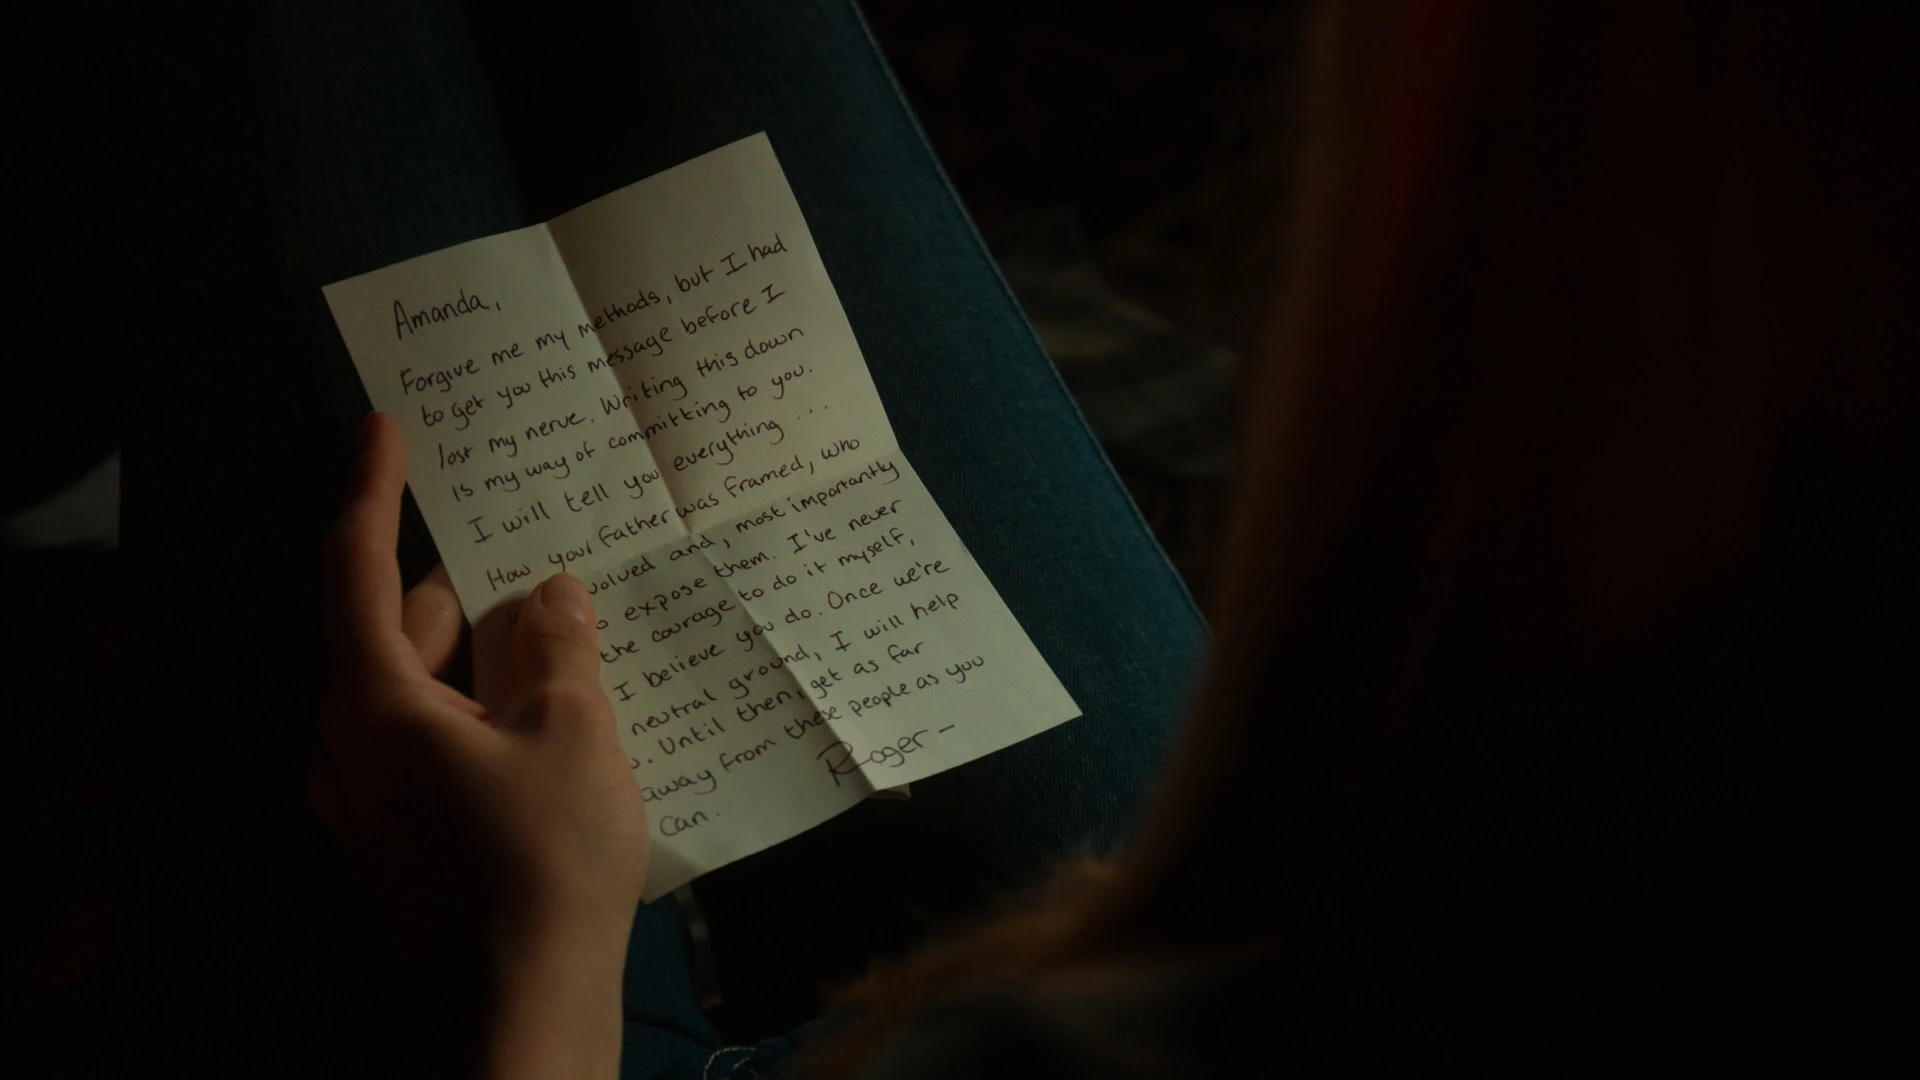 Amanda,
Forgive me my methods, but I had
to get you this message before I
lost my nerve. Writing this down
is my way of committing to you.
I will tell you everything ...
How your Father was framed, who
and, most importantly
expose them. I've never
the courage to do it myself,
I believe you do. Once we're
neutral ground, I will help
. Until then, get as far
away from these people as you
can.
Roger-